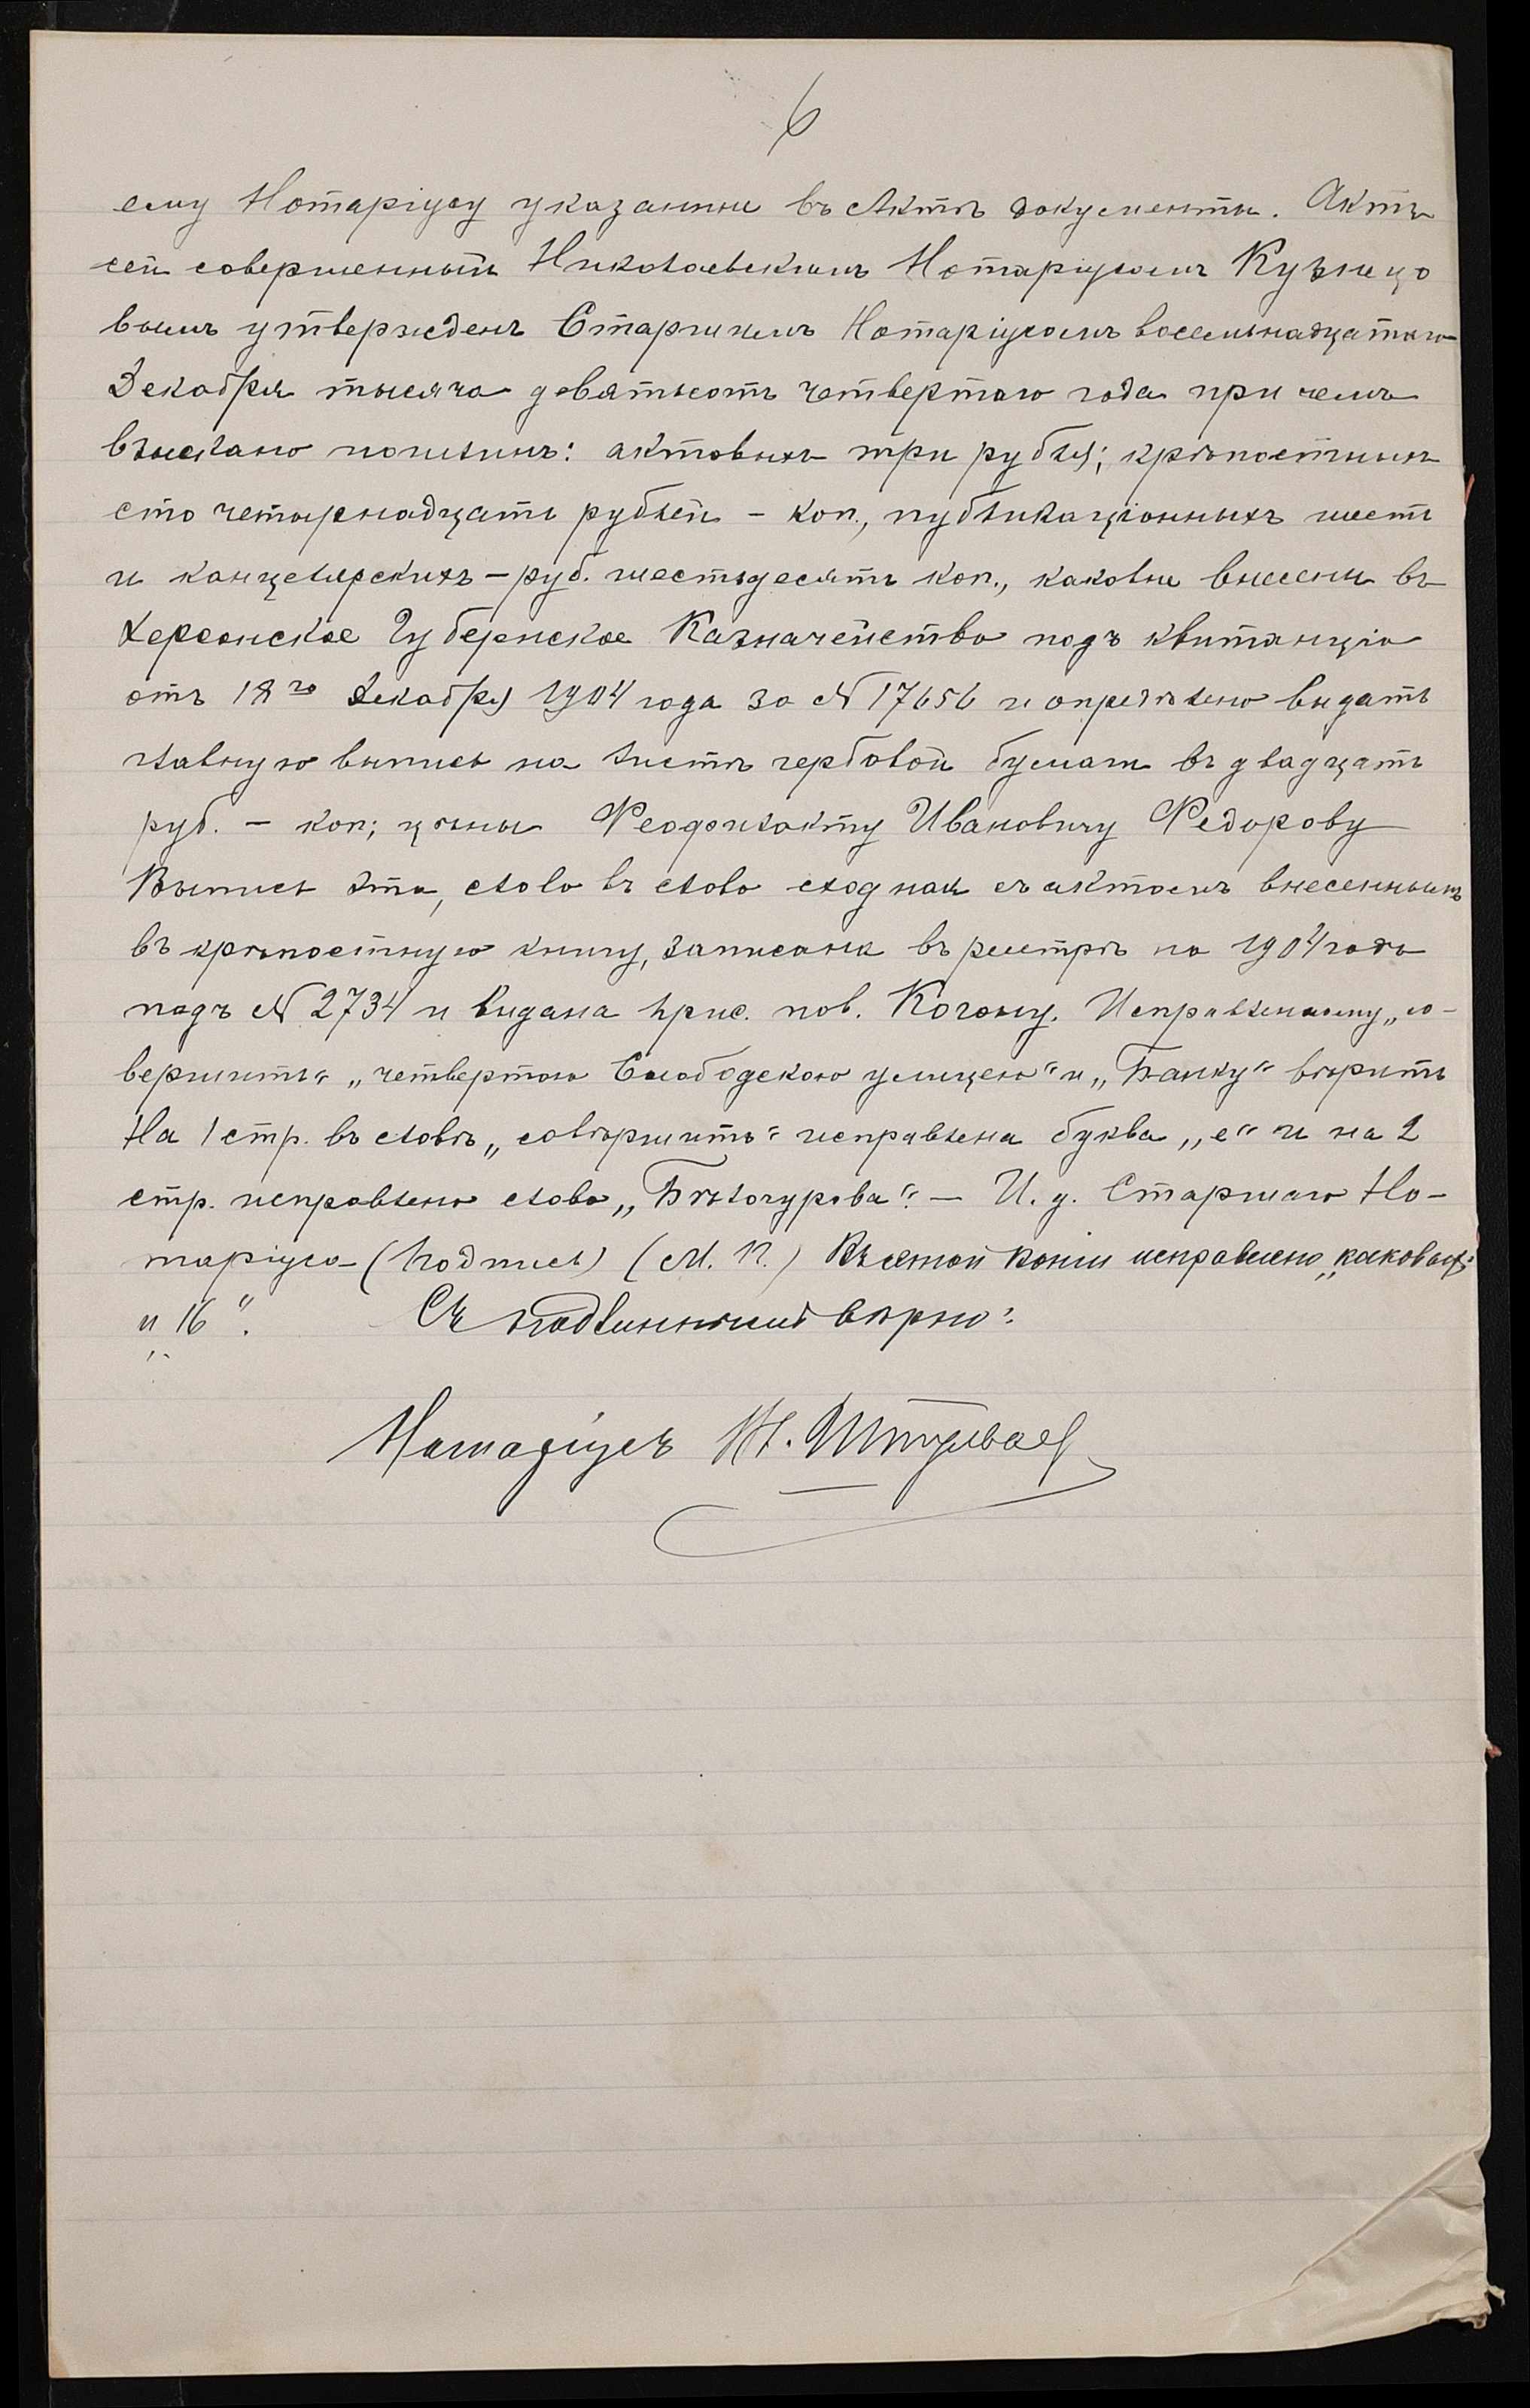 6
ему Нотаріусу указанные въ Актѣ документы. Актъ
сей совершенный Николаевскимъ Нотаріусомъ Кузнецо
вымъ утвержденъ Старшимъ Нотаріусомъ восемьнадцатаго
Декабря тысяча девятьсотъ четвертаго года при чемъ
взыскано пошлинъ: актовыхъ три рубля; крѣпостныхъ
сто четырнадцать рублей – коп., публикаціонныхъ шесть
и канцелярскихъ – руб. шестьдесятъ коп., каковые внесены въ
Херсонское Губернское Казначейство подъ квитанцію
отъ 18го Декабря 1904 года за № 17656 и опредѣлено выдать
главную выпись на листѣ гербовой бумаги въ двадцать
руб. – коп; цѣны Феофилакту Ивановичу Федорову
Выпись эта, слово въ слово сходная съ актомъ внесеннымъ
въ крѣпостную книгу, записана въ реестрѣ на 1904 годъ
подъ № 2734 и выдана прис. пов. Когону. Исправленному „со-
вершить“ „четвертою Слободскою улицею“ и „Банку“ вѣрить
На 1 стр. въ словѣ „совѣршить“ исправлена буква „е“ и на 2
стр. исправлено слово „Бѣлогурова“. – И. д. Старшаго Но-
таріуса (Подпись) (М. П.) Въ этой копіи исправлено „каковыхъ
и 16“. Съ подлиннымъ вѣрно:
Нотаріусъ